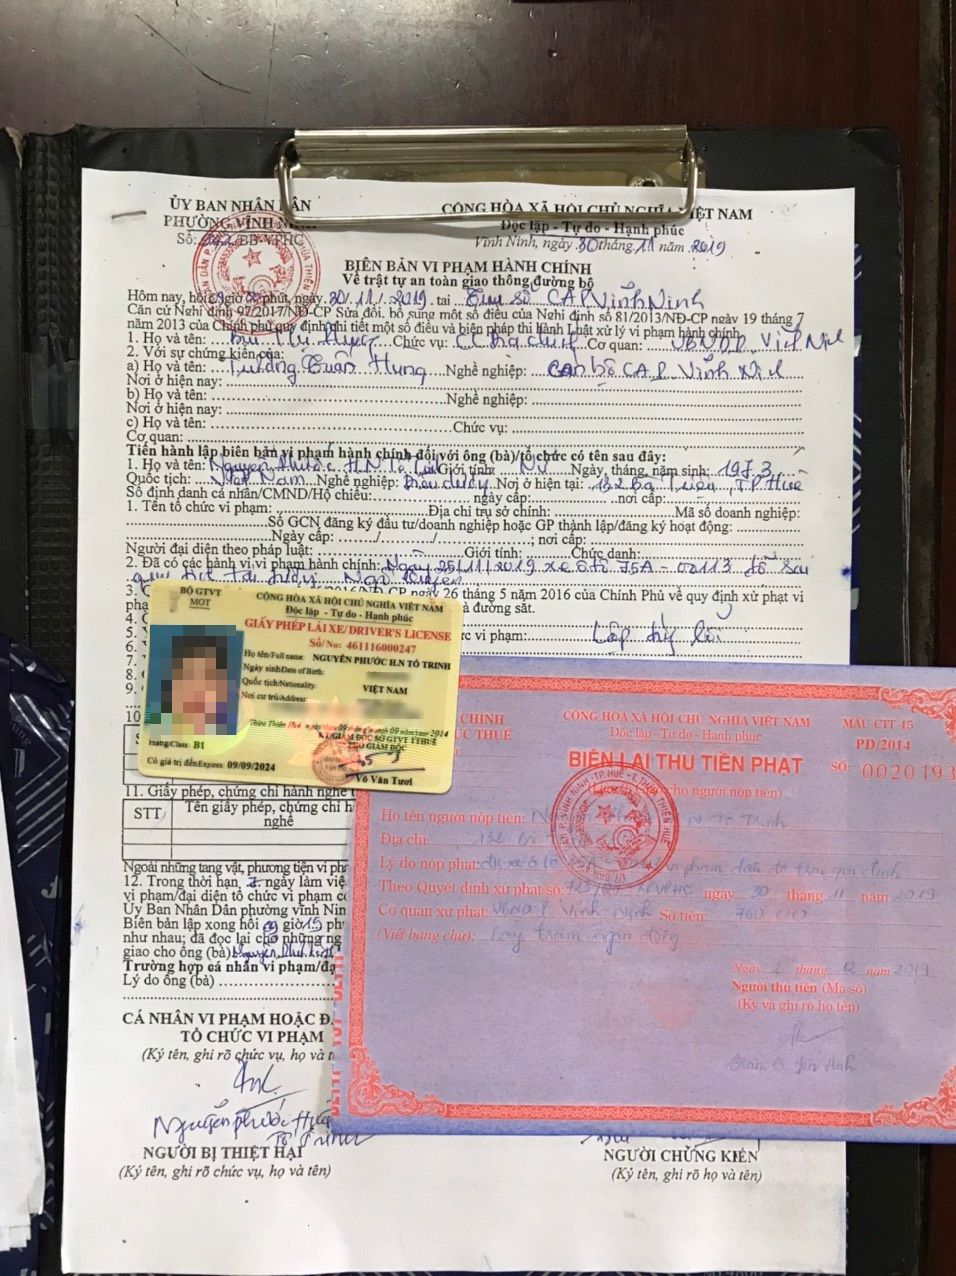 ỦY BAN NHÂN DÂN
PHƯỜNG VĨNH NINH
Số: /BB-VPHC
CỘNG HÒA XÃ HỘI CHỦ NGHĨA VIỆT NAM
Độc lập - Tự do - Hạnh phúc
Vĩnh Ninh, ngày 30 tháng 11 năm 2019
BIÊN BẢN VI PHẠM HÀNH CHÍNH
Về trật tự an toàn giao thông đường bộ
Hôm nay, hồi 09 giờ phút, ngày 30/11/2019 tại Trụ sở CAP Vĩnh Ninh
Căn cứ Nghị định 97/2017/NĐ-CP Sửa đổi, bổ sung một số điều của Nghị định số 81/2013/NĐ-CP ngày 19 tháng 7
năm 2013 của Chính phủ quy định chi tiết một số điều và biện pháp thi hành Luật xử lý vi phạm hành chính
1. Họ và tên: Chức vụ: Cơ quan: UBND P. Vĩnh Ninh
2. Với sự chứng kiến của:
a) Họ và tên: Trương Tuấn Hưng Nghề nghiệp: Cán bộ CAP Vĩnh Ninh
Nơi ở hiện nay:
b) Họ và tên: Nghề nghiệp:
Nơi ở hiện nay:
c) Họ và tên: Chức vụ:
Cơ quan:
Tiến hành lập biên bản vi phạm hành chính đối với ông (bà)/tổ chức có tên sau đây:
1. Họ và tên: Nguyễn Phước H.N Tô Giới tính: Nữ Ngày, tháng, năm sinh: 1973
Quốc tịch: Việt Nam Nghề nghiệp: Điều dưỡng Nơi ở hiện tại: 132 Bà Triệu, TP Huế
Số định danh cá nhân/CMND/Hộ chiếu: ngày cấp: nơi cấp:
1. Tên tổ chức vi phạm: Địa chỉ trụ sở chính: Mã số doanh nghiệp:
Số GCN đăng ký đầu tư/doanh nghiệp hoặc GP thành lập/đăng ký hoạt động:
Ngày cấp: / / ; nơi cấp:
Người đại diện theo pháp luật: Giới tính: Chức danh:
2. Đã có các hành vi vi phạm hành chính: Ngày 25/11/2019 xe ô tô 75A - 00113 đỗ sai
quy định tại đường Ngô Quyền
3. NĐ-CP ngày 26 tháng 5 năm 2016 của Chính Phủ về quy định xử phạt vi
phạ và đường sắt.
4.
5. vi phạm: Lập tỷ lỗi
6.
7.
8.
9.
10
BỘ GTVT
MOT
CỘNG HÒA XÃ HỘI CHỦ NGHĨA VIỆT NAM
Độc lập - Tự do - Hạnh phúc
GIẤY PHÉP LÁI XE/DRIVER'S LICENSE
Số/No: 461116000247
Họ tên/Full name: NGUYỄN PHƯỚC H.N TÔ TRINH
Ngày sinh/Date of Birth:
Quốc tịch/Nationality: VIỆT NAM
Nơi cư trú/Address:
Thừa Thiên Huế, ngày/date 09 tháng/month 09 năm/year 2014
KT.GIÁM ĐỐC SỞ GTVT TTHUẾ
PHÓ GIÁM ĐỐC
Hạng/Class: B1
Có giá trị đến/Expires: 09/09/2024
Võ Văn Tươi
11. Giấy phép, chứng chỉ hành nghề
STT Tên giấy phép, chứng chỉ h
nghề
Ngoài những tang vật, phương tiện vi ph
12. Trong thời hạn 7 ngày làm việ
vi phạm/đại diện tổ chức vi phạm c
Ủy Ban Nhân Dân phường vĩnh Nin
Biên bản lập xong hồi 09 giờ 15 ph
như nhau; đã đọc lại cho những ng
giao cho ông (bà) Nguyễn
Trường hợp cá nhân vi phạm/đạ
Lý do ông (bà)
CHÍNH
CỤC THUẾ
CỘNG HÒA XÃ HỘI CHỦ NGHĨA VIỆT NAM
Độc lập - Tự do - Hạnh phúc
MẪU CTT 45
PD/2014
BIÊN LAI THU TIỀN PHẠT
SỐ: 0020193
cho người nộp tiền)
Họ tên người nộp tiền: N Tô Trinh
Địa chỉ: 132
Lý do nộp phạt: đk xe ô tô 75A vi phạm dừng đỗ trái quy định
Theo Quyết định xử phạt số: ngày 30 tháng 11 năm 2019
Cơ quan xử phạt: UBND P. Vĩnh Ninh Số tiền: 700 000
(Viết bằng chữ): bảy trăm ngàn đồng
Ngày 2 tháng 12 năm 2019
Người thu tiền (Mã số)
(Ký và ghi rõ họ tên)
CÁ NHÂN VI PHẠM HOẶC ĐẠ
TỔ CHỨC VI PHẠM
(Ký tên, ghi rõ chức vụ, họ và t
Nguyễn Phước
Tô Trinh
NGƯỜI BỊ THIỆT HẠI
(Ký tên, ghi rõ chức vụ, họ và tên)
NGƯỜI CHỨNG KIẾN
(Ký tên, ghi rõ họ và tên)